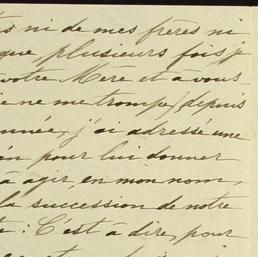 ni de mes frères ni
que, plusieurs fois, je
votre Mère et à vous
je ne me trompe, depuis
année, j'ai adressé une
pour lui donner
à agir, en mon nom,
la succession de notre
: C'est à dire, pour